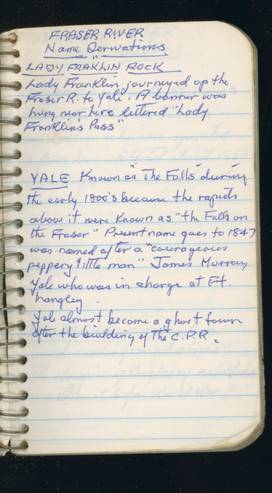 FRASER RIVER
Name Derivations
LADY FRAKLIN ROCK
Lady Franklin journeyed up the
Fraser R. to Yale. A banner was
hung near hire lettered "Lady
Franklins Pass"
YALE Known as "The Falls" during
the early 1800's because the rapids
above it were known as "the Falls on
the Fraser" Present name goes to 1847
was named after a "courageous
peppery little man" James Murray
Yale who was in charge at Ft.
Langley.
Yale almost became a ghost town
after the building of the C.P.R.